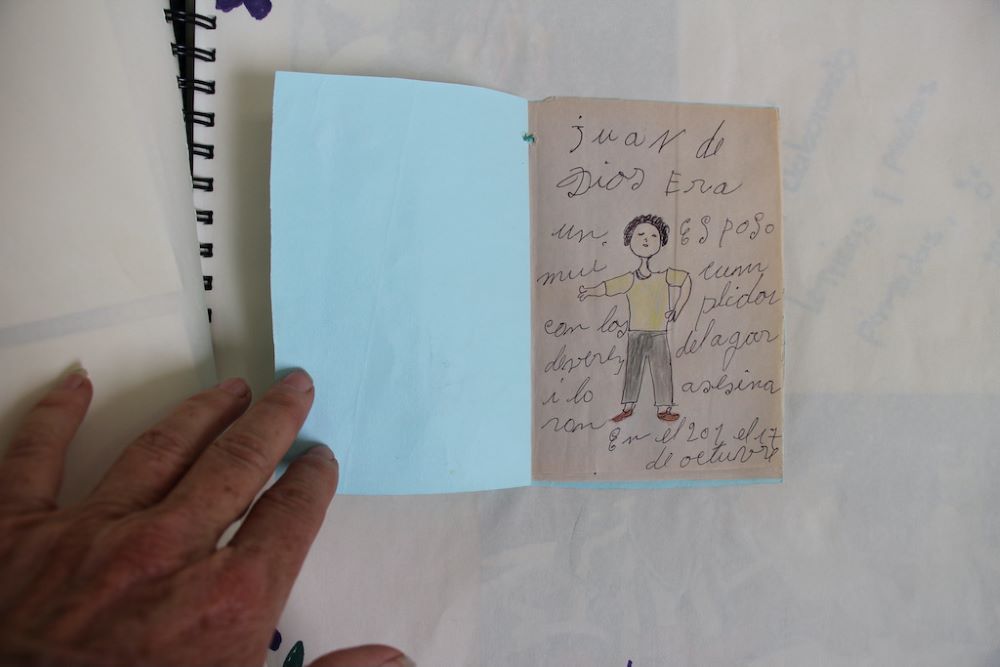 juan de
Dios Era
un ESposo
mui cum
plidor
con los
deveres delagar
i lo asesina
ron
En el 201 el 17
de octuvre